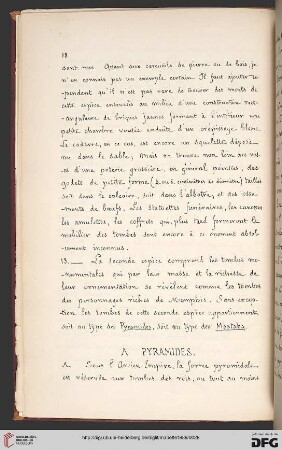 18
sont nus. Quant aux cercueils de pierre ou de bois, je
n'en connais pas un exemple certain. Il faut ajouter ce-
pendant qu'il n'est pas rare de trouver des morts de
cette espèce enterrés au milieu d'une construction rect-
angulaire de briques jaunes formant à l'intérieur une
petite chambre voutée enduite d'un crépissage blanc.
Le cadavre, en ce cas, est encore un squelette déposé
nu dans le sable, mais on trouve non loin des ves-
d'une poterie grossière, en général pareilles, des
godets de petite forme
soit dans le calcaire, soit dans l'albatre, et des osse-
ments de bœufs. Les statuettes funéraires, les canopes
les amulettes, les coffrets qui, plus tard formeront le
mobilier des tombes sont encore à ce moment absol-
ument inconnus.
13. — La seconde espèce comprend les tombes mo-
numentales qui par leur masse et la richesse de
leur ornementation se révèlent comme les tombes
des personnages riches de Memphis. Sans excep-
tion, les tombes de cette seconde espèce appartiennent
soit au type des Pyramides, soit au type des Mastabas.
A PYRAMIDES.
A. Sous l'Ancien Empire, la forme pyramidale
est réservée aux tombes des rois, ou tout au moins
DFG